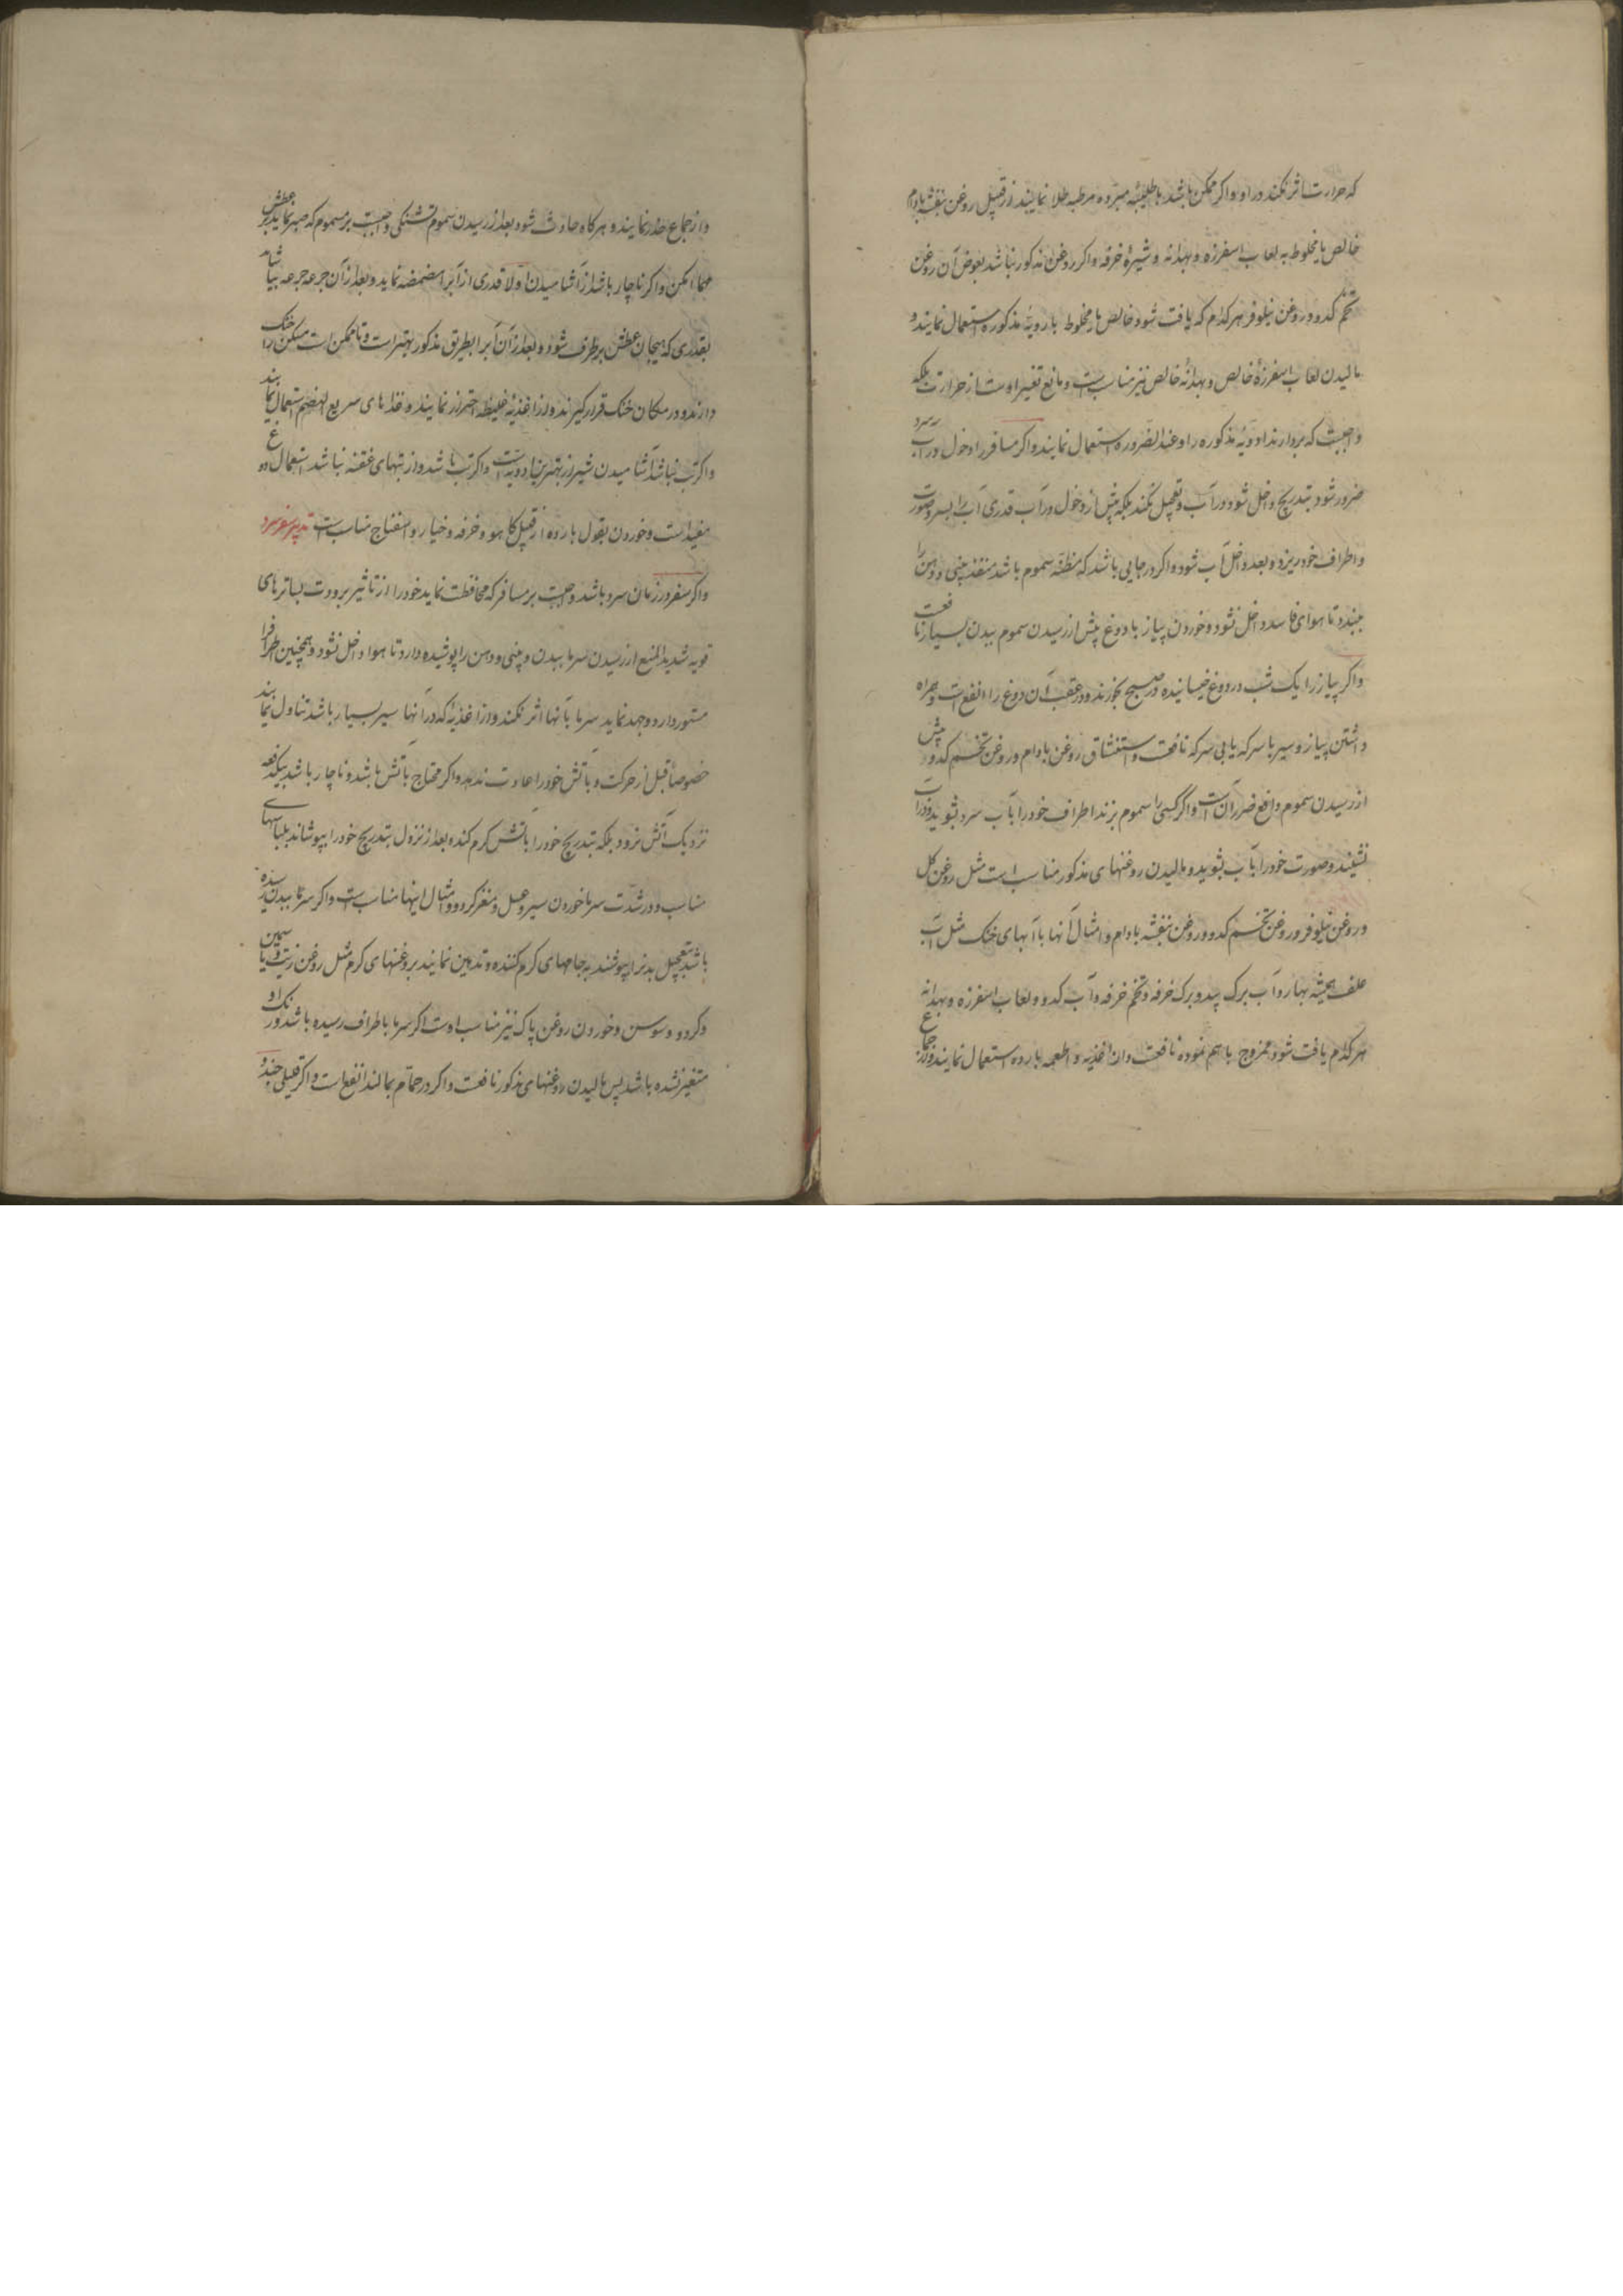 که حرارت تاثر نکند در او و اکر ممکن باشد با طلیهٔ مبرده مرطبه طلا نمایند از قبیل روغن بنفشه بادام
خالص یا مخلوط به لعاب اسفرزه و بهدانه و شیرهٔ خرفه و اکر روغن مذکور نباشد بعوض آن روغن
تخم کدو و روغن نیلوفر هر کدام که یافت شود خالص یا مخلوط بادویهٔ مذکوره استعمال نمایند و
مالیدن لعاب اسفرزهٔ خالص و بهدانهٔ خالص نیز مناسب است و مانع تغیر اوست از حرارت بلکه
واجبست که بردارند ادویهٔ مذکوره را و عند الضروره استعمال نمایند و اکر مسافر را دخول در آب سرد
ضرور شود بتدریج داخل شود در آب و تعجیل نکند بلکه پیش از دخول در آب قدری آب را بسر و صورت
و اطراف خود ریزد و بعد داخل آب شود و اکر در جایی باشد که مظنهٔ سموم باشد منفذ بینی و دهن را
ببندد تا هوای فاسد داخل نشود و خوردن پیاز با دوغ پیش از رسیدن سموم ببدن بسیار نافعست
و اکر پیاز را یک شب در دوغ خیسانیده در صبح بخورند و در عقب آن دوغ را انفع است و همراه
داشتن پیاز و سیر با سرکه یا بی سرکه نافعست و استنشاق روغن بادام و روغن تخم کدو پیش
از رسیدن سموم دافع ضرر آن است و اکر کسی را سموم بزند اطراف خود را بآب سرد بشوید و در آب
نشیند و صورت خود را بآب بشوید و مالیدن روغنهای مذکور مناسب است مثل روغن کل
و روغن نیلوفر و روغن تخم کدو و روغن بنفشه بادام و امثال آنها با آبهای خنک مثل آب
علف همیشه بهار و آب برک بید و برک خرفه و تخم خرفه و آب کدو و لعاب اسفرزه و بهدانه
هر کدام یافت شود ممزوج باهم نموده نافعست و از اغذیه و اطعمه بارده استعمال نمایند و از جماع
و از جماع حذر نمایند و هر کاه حادث شود بعد از رسیدن سموم تشنکی واجبست بر مسموم که صبر نماید بر عطش
مهما امکن و اکر ناچار باشد از آشامیدن اولا قدری از آب را مضمضه نماید و بعد از آن جرعه جرعه بیاشامد
بقدری که هیجان عطش برطرف شود و بعد از آن آب را بطریق مذکور بهتر است و تا ممکن است مسکن را خنک
دارند و در مکان خنک قرار کیرند و از اغذیهٔ غلیظه احتراز نمایند و غذاهای سریع الهضم استعمال نمایند
و اکر تب نباشد آشامیدن شیر از بهترین ادویه است و اکر تب باشد و از تبهای عفنه نباشد استعمال دوغ
مفید است و خوردن بقول بارده از قبیل کاهو و خرفه و خیار و اسفناج مناسب است تدبیر سفر سرد
و اکر سفر در زمان سرد باشد واجبست بر مسافر که محافظت نماید خود را از تاثیر برودت بساترهای
قویه شدید المنع از رسیدن سرما ببدن و بینی و دهن را پوشیده دارد تا هوا داخل نشود و همچنین اطراف را
مستور دارد و جهد نماید سرما بآنها اثر نکند و از اغذیهٔ که در آنها سیر بسیار باشد تناول نمایند
خصوصاً قبل از حرکت و بآتش خود را عادت ندهد و اکر محتاج بآتش باشد و ناچار باشد بیکدفعه
نزدیک آتش نرود بلکه بتدریج خود را بآتش کرم کند و بعد از نزول بتدریج خود را بپوشاند بلباسهای
مناسب و در شدت سرما خوردن سیر و عسل و مغز کردو و امثال اینها مناسب است و اکر سرما ببدن رسیده
باشد بتعجیل بدن را بپوشند به جامهای کرم کننده و تدهین نمایند بروغنهای کرم مثل روغن زیت و یاسمین
و کردو و سوسن و خوردن روغن پاک نیز مناسب اوست اکر سرما باطراف رسیده باشد و رنک او
متغیر نشده باشد پس مالیدن روغنهای مذکور نافعست و اکر در حمام بمالند انفع است و اکر قلیلی جند